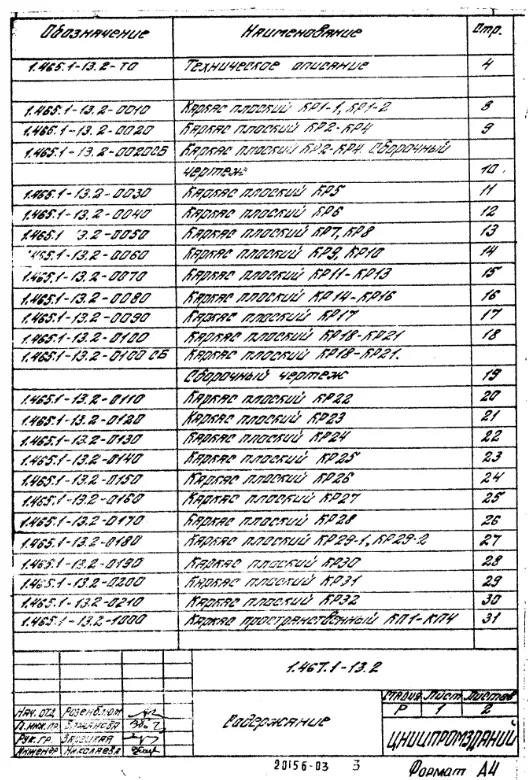 Обозначение Наименование Стр.
1.465.1-13.2-ТО Техническое описание 4
1.465.1-13.2-0010 Каркас плоский КР1-1, КР1-2 8
1.465.1-13.2-0020 Каркас плоский КР2-КР4 9
1.465.1-13.2-0020СБ Каркас плоский КР2-КР4. Сборочный
чертеж 10
1.465.1-13.2-0030 Каркас плоский КР5 11
1.465.1-13.2-0040 Каркас плоский КР6 12
1.465.1 3.2-0050 Каркас плоский КР7, КР8 13
1.465.1-13.2-0060 Каркас плоский КР9, КР10 14
1.465.1-13.2-0070 Каркас плоский КР11-КР13 15
1.465.1-13.2-0080 Каркас плоский КР14-КР16 16
1.465.1-13.2-0090 Каркас плоский КР17 17
1.465.1-13.2-0100 Каркас плоский КР18-КР21 18
1.465.1-13.2-0100 СБ Каркас плоский КР18-КР21.
Сборочный чертеж 19
1.465.1-13.2-0110 Каркас плоский КР22 20
1.465.1-13.2-0120 Каркас плоский КР23 21
1.465.1-13.2-0130 Каркас плоский КР24 22
1.465.1-13.2-0140 Каркас плоский КР25 23
1.465.1-13.2-0150 Каркас плоский КР26 24
1.465.1-13.2-0160 Каркас плоский КР27 25
1.465.1-13.2-0170 Каркас плоский КР28 26
1.465.1-13.2-0180 Каркас плоский КР29-1, КР29-2 27
1.465.1-13.2-0190 Каркас плоский КР30 28
1.465.1-13.2-0200 Каркас плоский КР31 29
1.465.1-13.2-0210 Каркас плоский КР32 30
1.465.1-13.2-1000 Каркас пространственный КП1-КП4 31
1.467.1-13.2
Стадия Лист Листов
Р 1 2
Нач. отд. Розенблюм
Гл. инж. пр.
Рук. гр.
Инженер Николаева
Содержание
ЦНИИПРОМЗДАНИЙ
20156-03 3
Формат А4